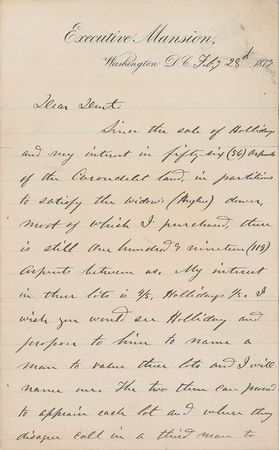 Executive Mansion,
Washington D.C. Feby 28th 1872
Dear Dent:
Since the sale of Hollidays
and my interest in fifty six (56) Arpents
of the Carondelet land, in partition
to satisfy the widow's (Hughes) dower,
most of which I purchased, there
is still One hundred & nineteen (119)
Arpents between us. My interest
in three lots is Hollidays I
wish you would see Holliday and
propose to him to name a
man to value these lots and I will
name one. The two then can proceed
to appraise each lot and where they
disagree call in a third man to